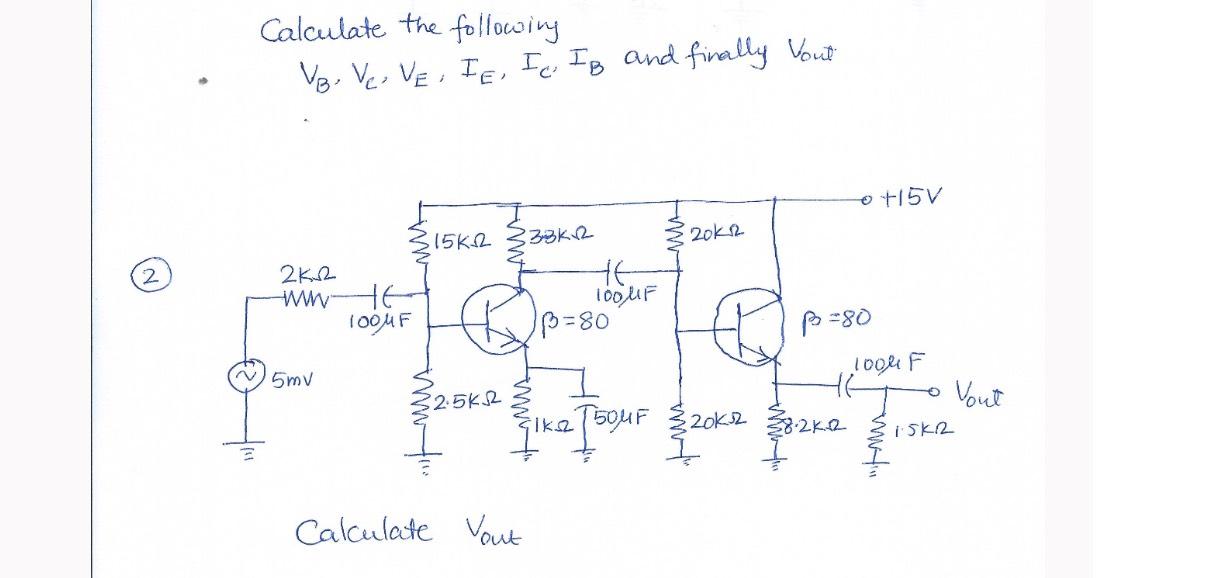 Calculate the following
V_B, V_C, V_E, I_E, I_C, I_B and finally Vout
+15V
15KΩ 33KΩ 20KΩ
2
2KΩ
100µF
100µF
β=80
β=80
5mV
100µF
Vout
2.5KΩ
1KΩ 50µF 20KΩ 8.2KΩ 1.5KΩ
Calculate Vout